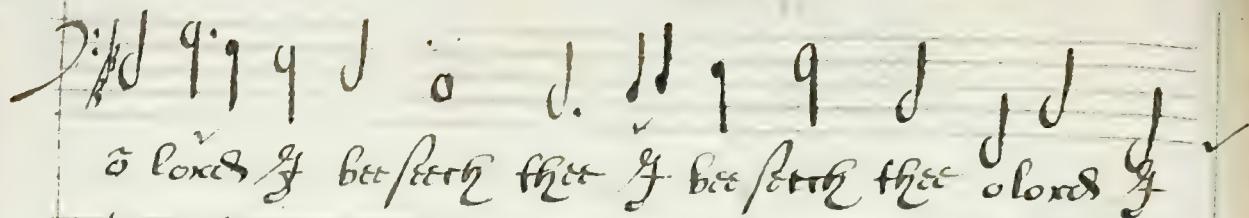 ō lord I beeseech thee I bee seech thee o lord I